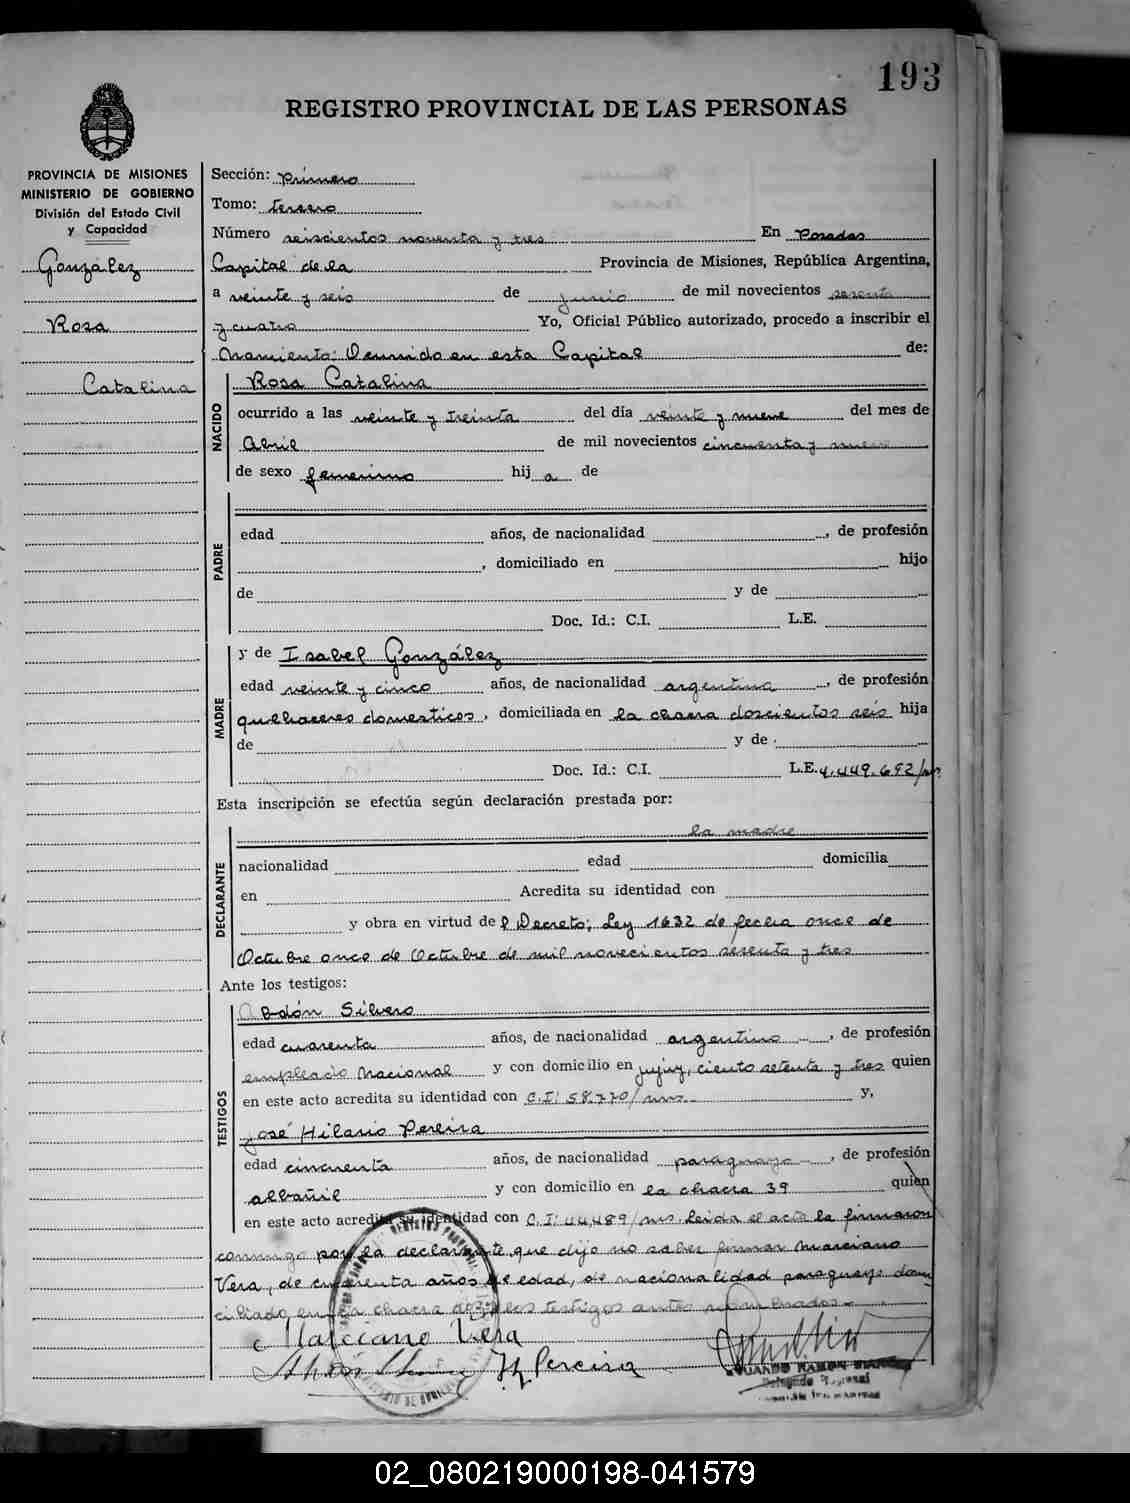 193
REGISTRO PROVINCIAL DE LAS PERSONAS
PROVINCIA DE MISIONES
MINISTERIO DE GOBIERNO
División del Estado Civil
y Capacidad
González
Rosa
Catalina
Sección: Primero
Tomo: tercero
Número seiscientos noventa y tres En Posadas
Capital de la Provincia de Misiones, República Argentina,
a veinte y seis de junio de mil novecientos sesenta
y cuatro Yo, Oficial Público autorizado, procedo a inscribir el
Nacimiento: Ocurrido en esta Capital de:
NACIDO
Rosa Catalina
ocurrido a las veinte y treinta del día veinte y nueve del mes de
Abril de mil novecientos cincuenta y nueve
de sexo femenino hij a de
PADRE
edad años, de nacionalidad , de profesión
, domiciliado en hijo
de y de
Doc. Id.: C.I. L.E.
MADRE
y de Isabel González
edad veinte y cinco años, de nacionalidad argentina , de profesión
quehaceres domesticos, domiciliada en la chacra doscientos seis hija
de y de
Doc. Id.: C.I. L.E. 4.449.692/
Esta inscripción se efectúa según declaración prestada por:
DECLARANTE
la madre
nacionalidad edad domicilia
en Acredita su identidad con
y obra en virtud del Decreto; Ley 1632 de fecha once de
Octubre once de Octubre de mil novecientos sesenta y tres
Ante los testigos:
TESTIGOS
Abdón Silvero
edad cuarenta años, de nacionalidad argentino , de profesión
empleado Nacional y con domicilio en jujuy, ciento setenta y tres quien
en este acto acredita su identidad con C.I: 58.770/ mns y,
José Hilario Pereira
edad cincuenta años, de nacionalidad paraguayo , de profesión
albañil y con domicilio en la chacra 39 quien
en este acto acredita su identidad con C.I: 44,489/ mns. Leida el acta la firmaron
conmigo por la declarante, que dijo no saber firmar Marciano
Vera, de cincuenta años de edad, de nacionalidad paraguayo domi
ciliado en la chacra los testigos antes nombrados.-
Marciano Vera
Pereira
RAMON
02_080219000198-041579